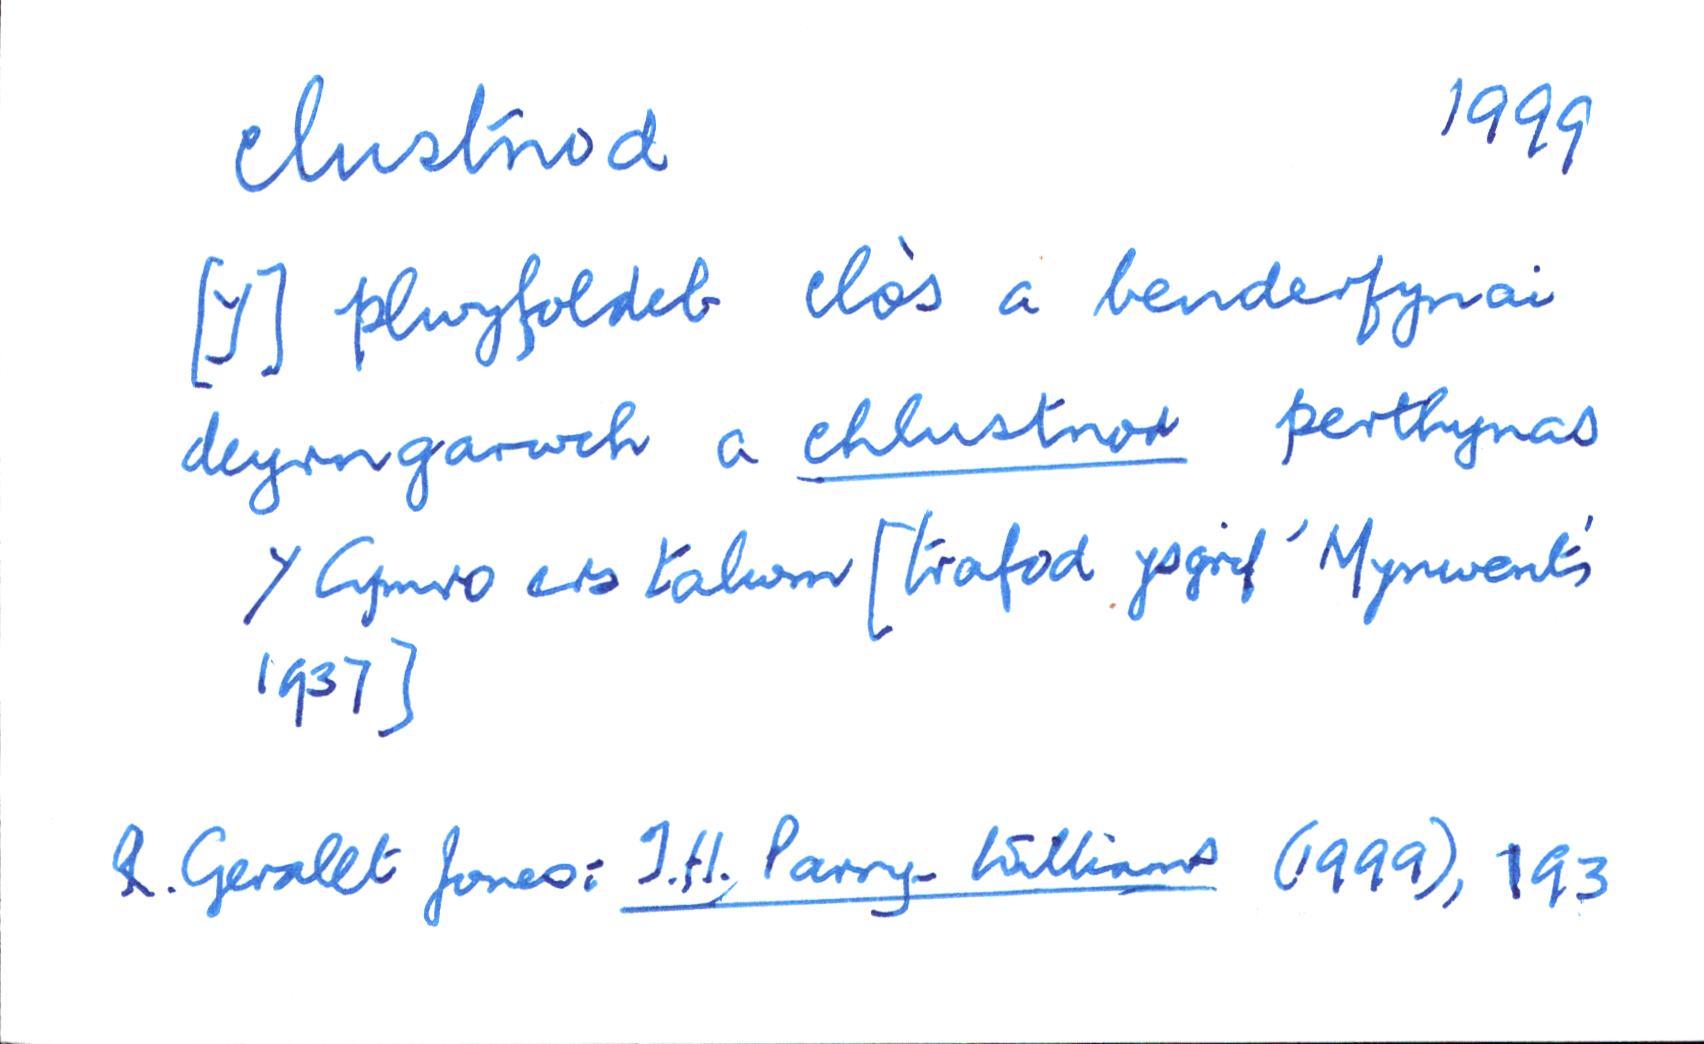 clustnod 1999
[y] plwyfoldeb clòs a benderfynai
deyrngarwch a chlustnod perthynas
y Cymro ers talwm [trafod ysgrif 'Mynwent'
1937]
R. Gerallt Jones: T.H. Parry-Williams (1999), 193